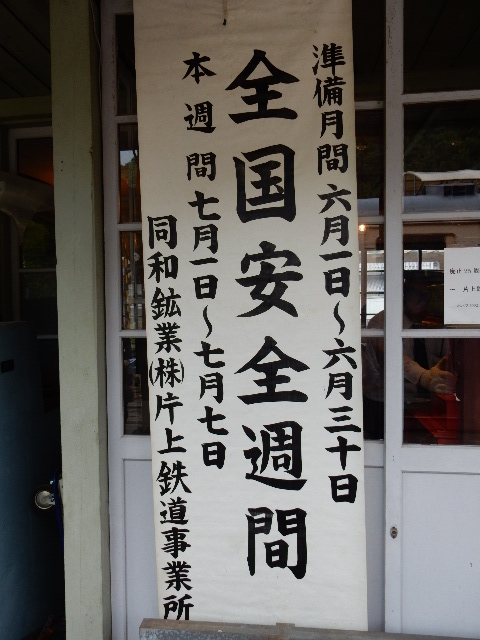 準備月間 六月一日～六月三十日
全国安全週間
本週間 七月一日～七月七日
同和鉱業(株)片上鉄道事業所